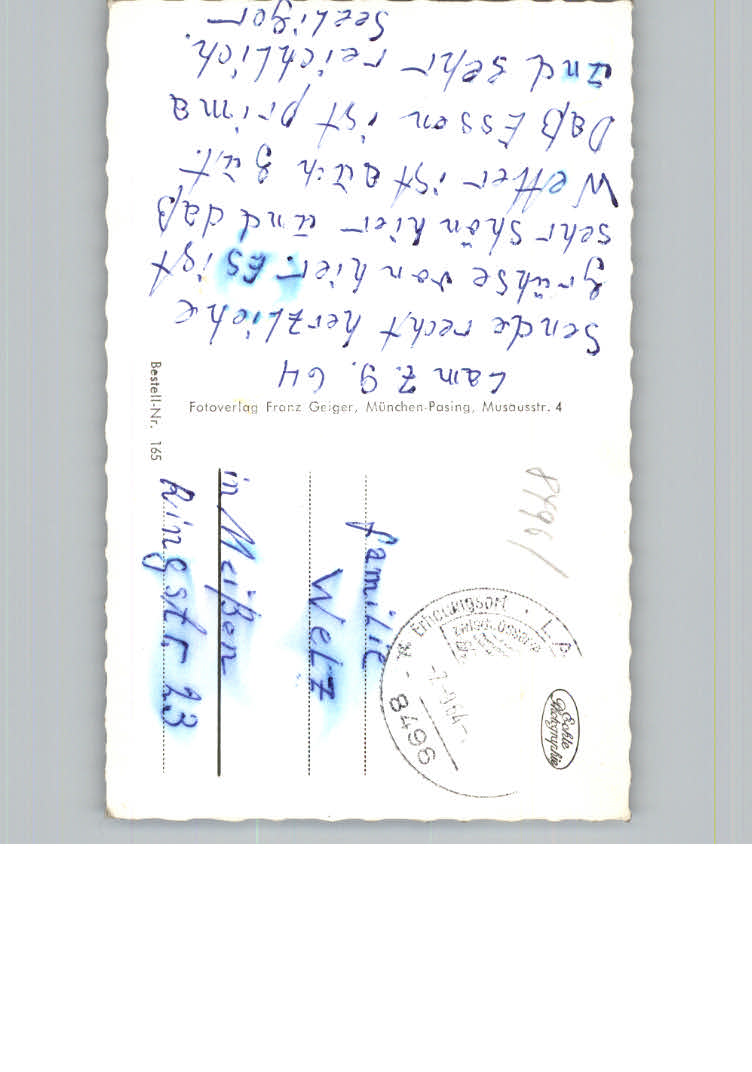 Lam 7. 9. 64
Sende recht herzliche
grühse von hier. Es ist
sehr shön hier und daß
Wetter ist auch gut.
Daß Essen ist prima
und sehr reichlich.
Seeliger
Fotoverlag Franz Geiger, München-Pasing, Musausstr. 4
Bestell-Nr. 165
familie
Welz
in Meißen
Ringstr. 23
8496
Erholungsort
8496
Echte
Photographie